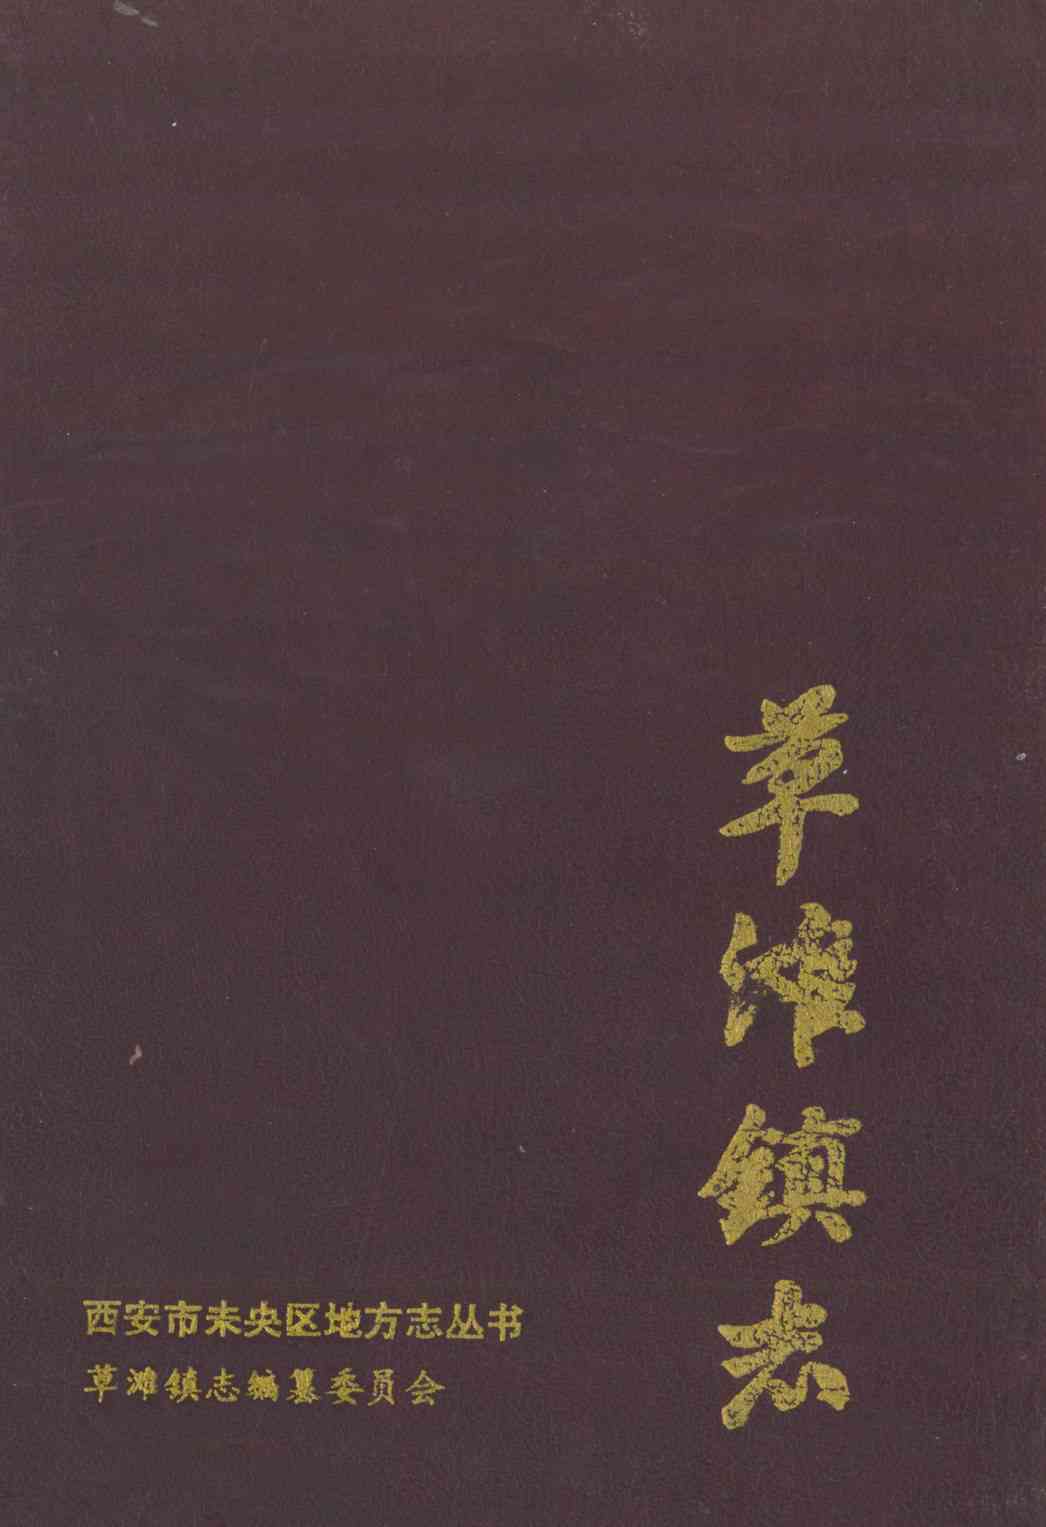 草滩镇志
西安市未央区地方志丛书
草滩镇志编纂委员会